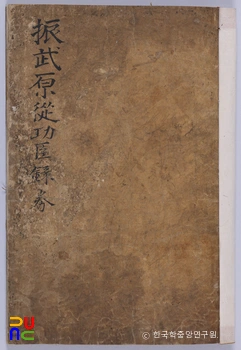 振武原從功臣錄券
© 한국학중앙연구원